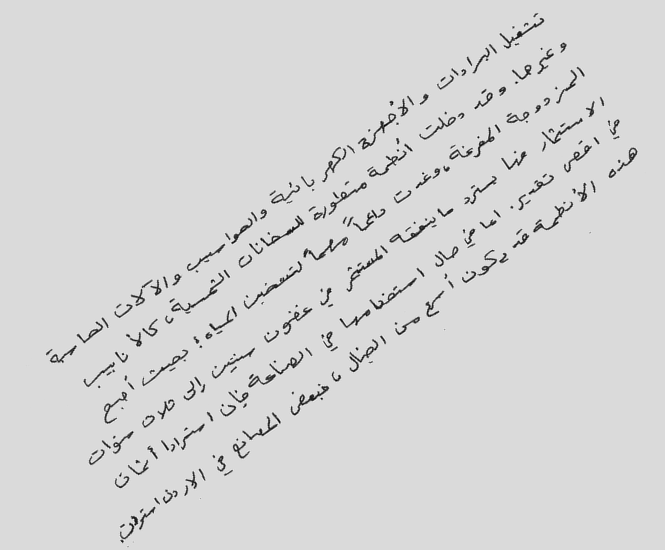 تشغيل البرادات والأجهزة الكهربائية والحواسيب والآلات الحاسبة
وغيرها. وقد دخلت أنظمة متطورة للسخانات الشمسية، كالأنابيب
المزدوجة المفرغة، وغدت داعماً مهماً لتسخين المياه؛ بحيث أصبح
الاستثمار فيها يسترد ما ينفقه المستثمر في غضون سنتين إلى ثلاث سنوات
في اقصى تقدير. اما في حال استخدامها في الصناعة فإن استرداد أثمان
هذه الأنظمة قد يكون أسرع من الخيال، فبعض المصانع في الاردن استردت